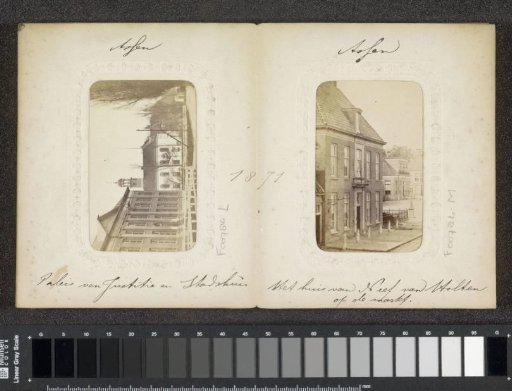 Assen
Assen
1871
F00784 L
Paleis van Justitie en Stadshuis
Het huis van Neef van Holthen
op de markt.
COLOR
Linear Gray Scale
0 5 10 15 20 25 30 35 40 45 50 55 60 65 70 75 80 85 90 95 0
mm